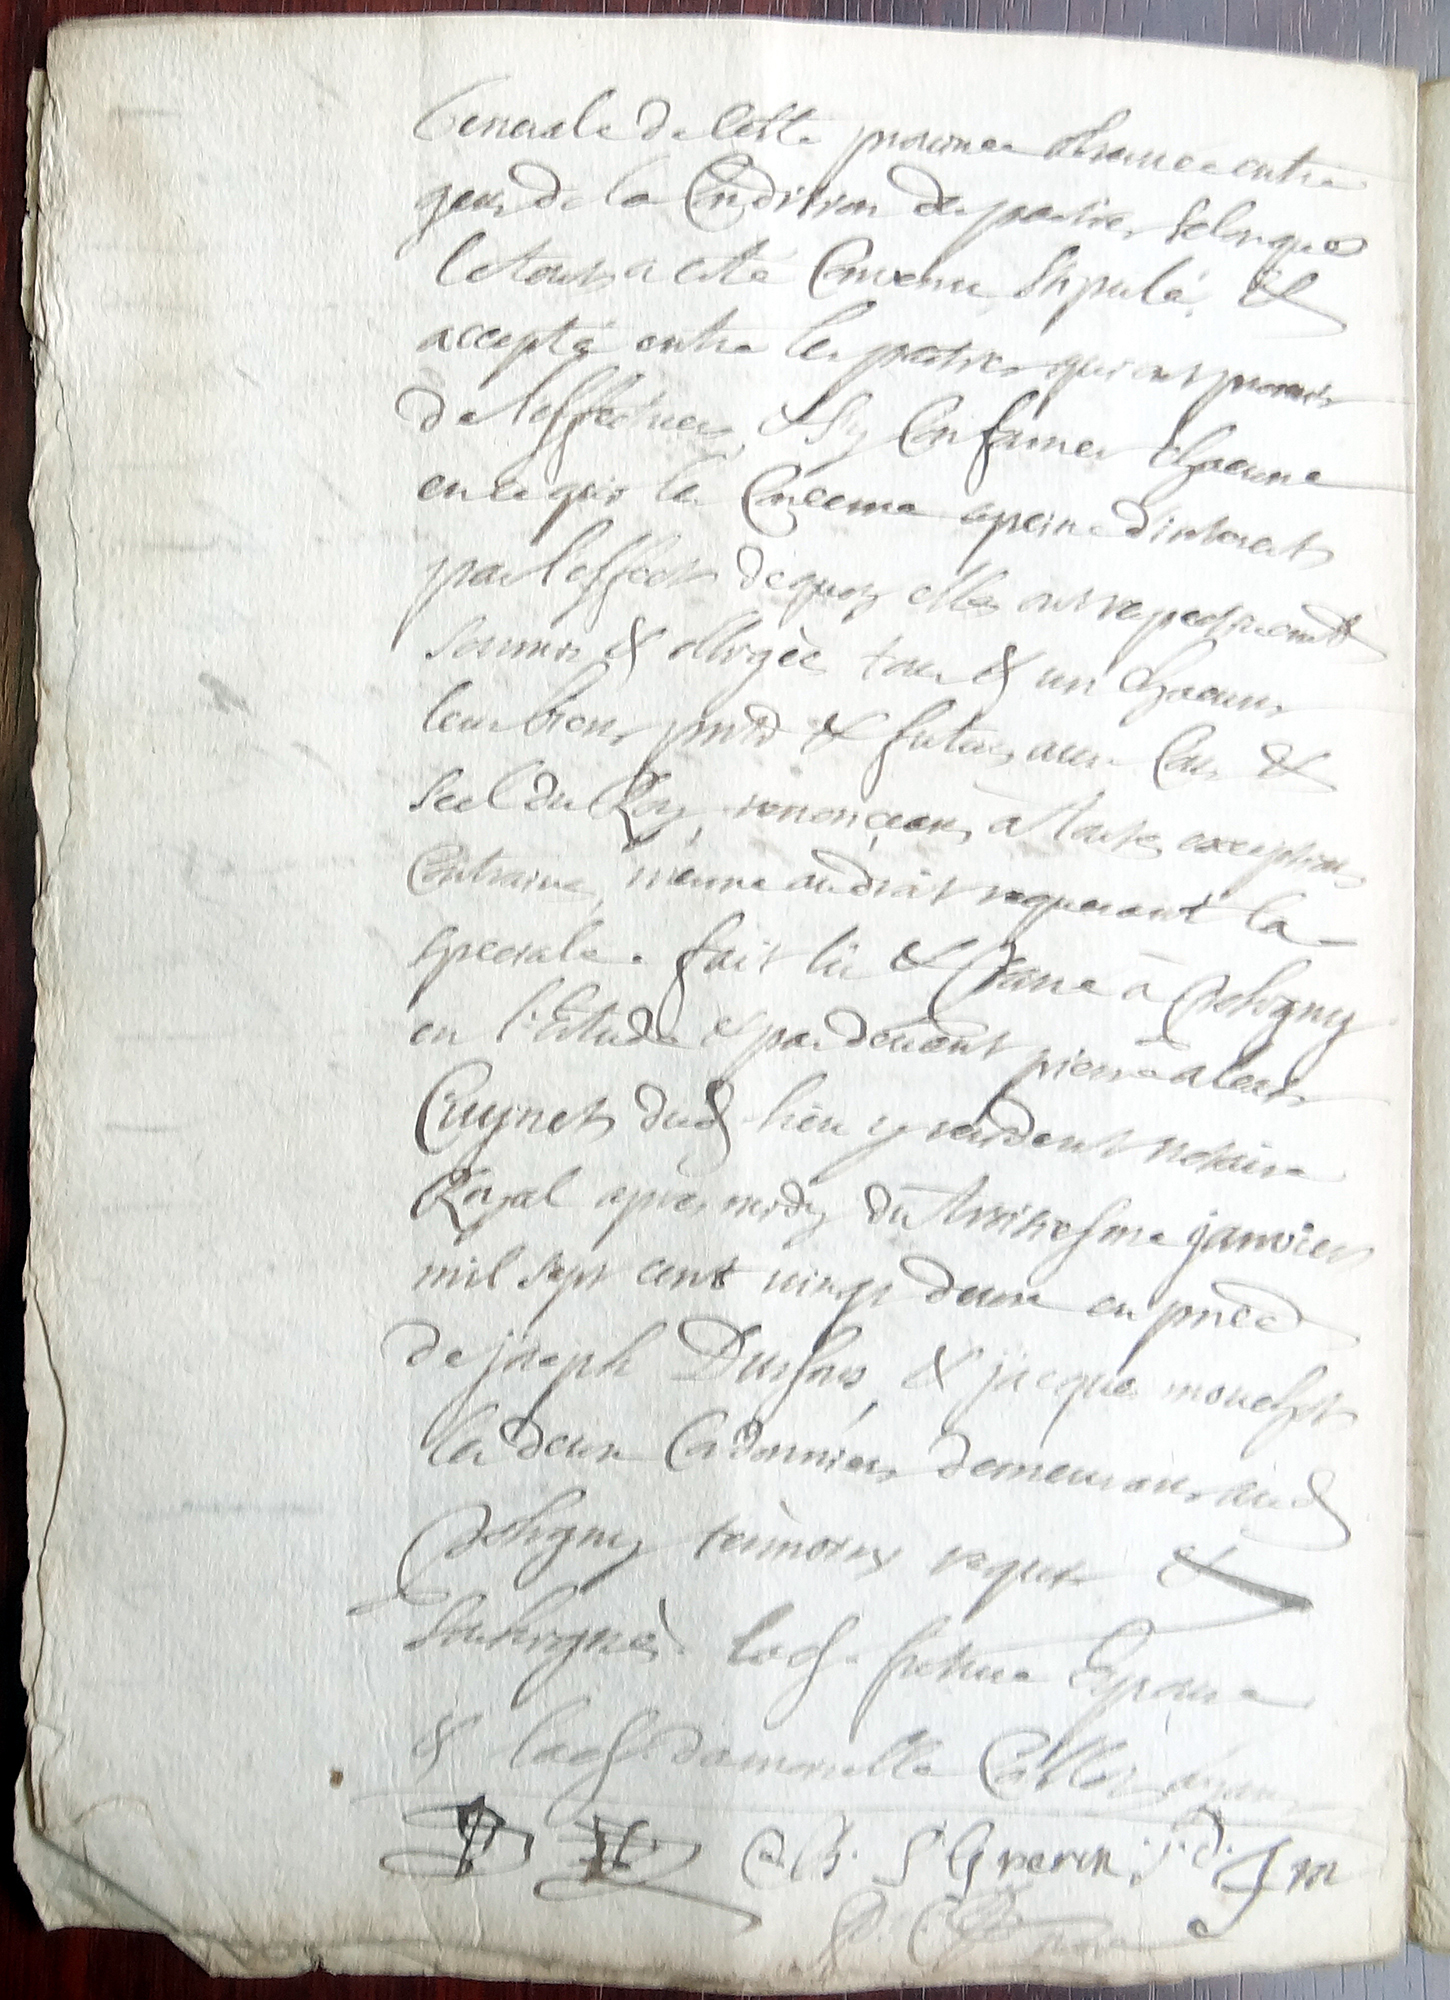 Generale de Cette province observée entre
gens de la Condition des parties selon quoi
le tout a esté Convenu, stipulé, &
accepté entre les parties qui ont promis
de l'effectuer, & s'y Conformer chacune
en ce qui les Concerne a peine d'interest
par l'effect de quoy elles ont respectivemt
soumis & obligés tous & un chacuns
leurs biens pnts & futurs aux Cour &
scel du Roy, renonçeans, a toutes exceptions
Contraires, mesme au droit requerant la
speciale. fait lu & passé a Coligny
en l'Estude & pardevant pierre
Cuynet dud lieu y residant notaire
Royal apres midy du troisiesme janvier
mil sept cent vingt deux en pnce
de joseph Dufour, & jacque
les deux Cordonniers demeurans aud
Coligny tesmoins requis &
Soubsignés. lad. future Espouse
& lad. damoiselle